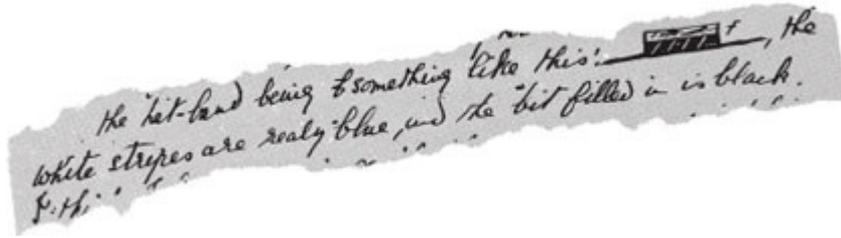 the hat-band being something like this: , the
white stripes are realy blue, and the bit filled in is black.